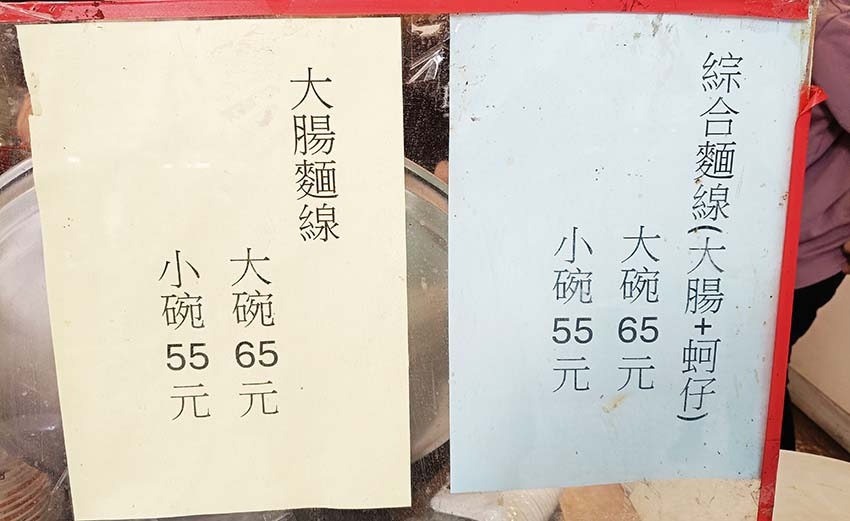 大腸麵線
大碗65元
小碗55元
綜合麵線(大腸+蚵仔)
大碗65元
小碗55元